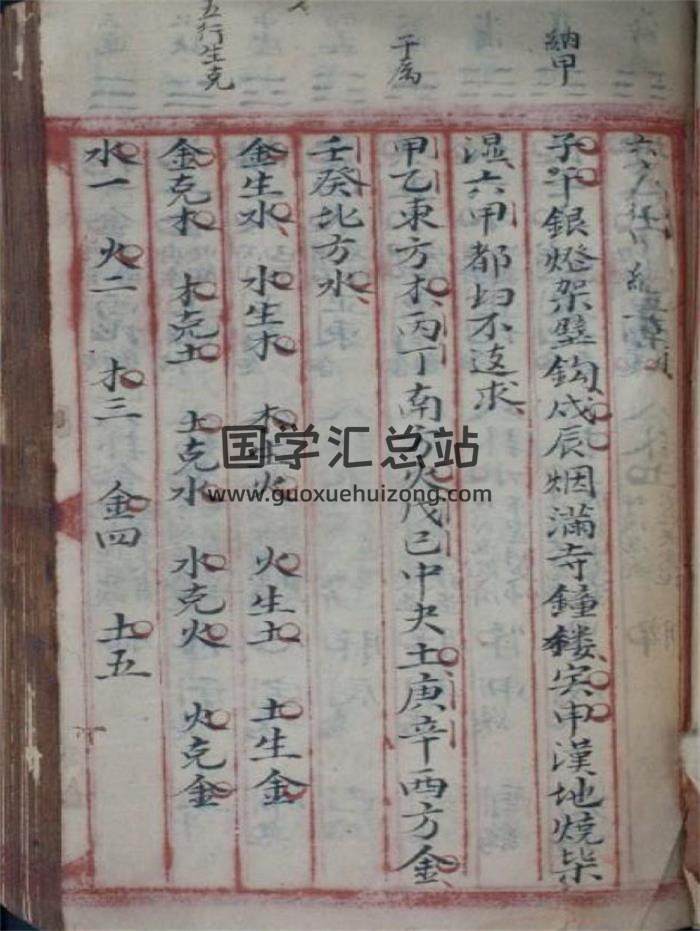 納甲
干属
五行生克
子午銀燈架壁鈎戍辰烟滿寺鐘楼寅申漢地燒柴
湿六甲都均不这求
甲乙東方木丙丁南方火戊己中央土庚辛西方金
壬癸北方水
金生水 水生木 木生火 火生土 土生金
金克木 木克土 土克水 水克火 火克金
水一 火二 木三 金四 土五
国学汇总站
www.guoxuehuizong.com